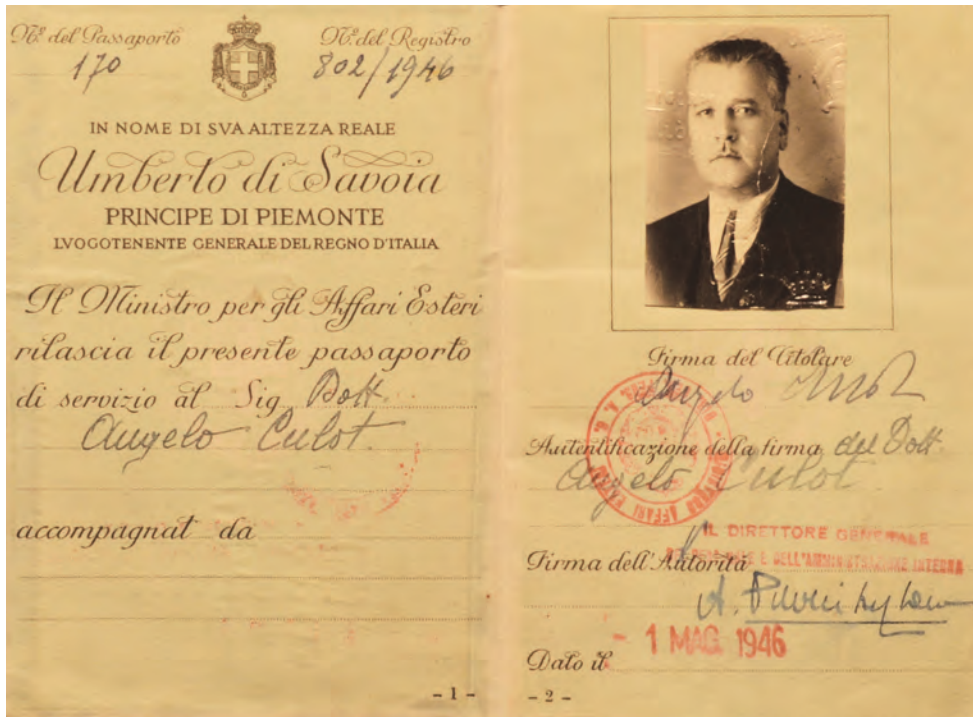 Nº del Passaporto
170
Nº del Registro
802/1946
IN NOME DI SVA ALTEZZA REALE
Umberto di Savoia
PRINCIPE DI PIEMONTE
LVOGOTENENTE GENERALE DEL REGNO D'ITALIA
Il Ministro per gli Affari Esteri
rilascia il presente passaporto
di servizio al Sig. Dott.
Angelo Culot
accompagnat da
- 1 -
Firma del Titolare
Angelo Culot
Autentificazione della firma del Dott.
Angelo Culot
AFFARI
IL DIRETTORE GENERALE
DEL PERSONALE E DELL'AMMINISTRAZIONE INTERNA
Firma dell'Autorità
A.
- 1 MAG. 1946
Dato il
- 2 -